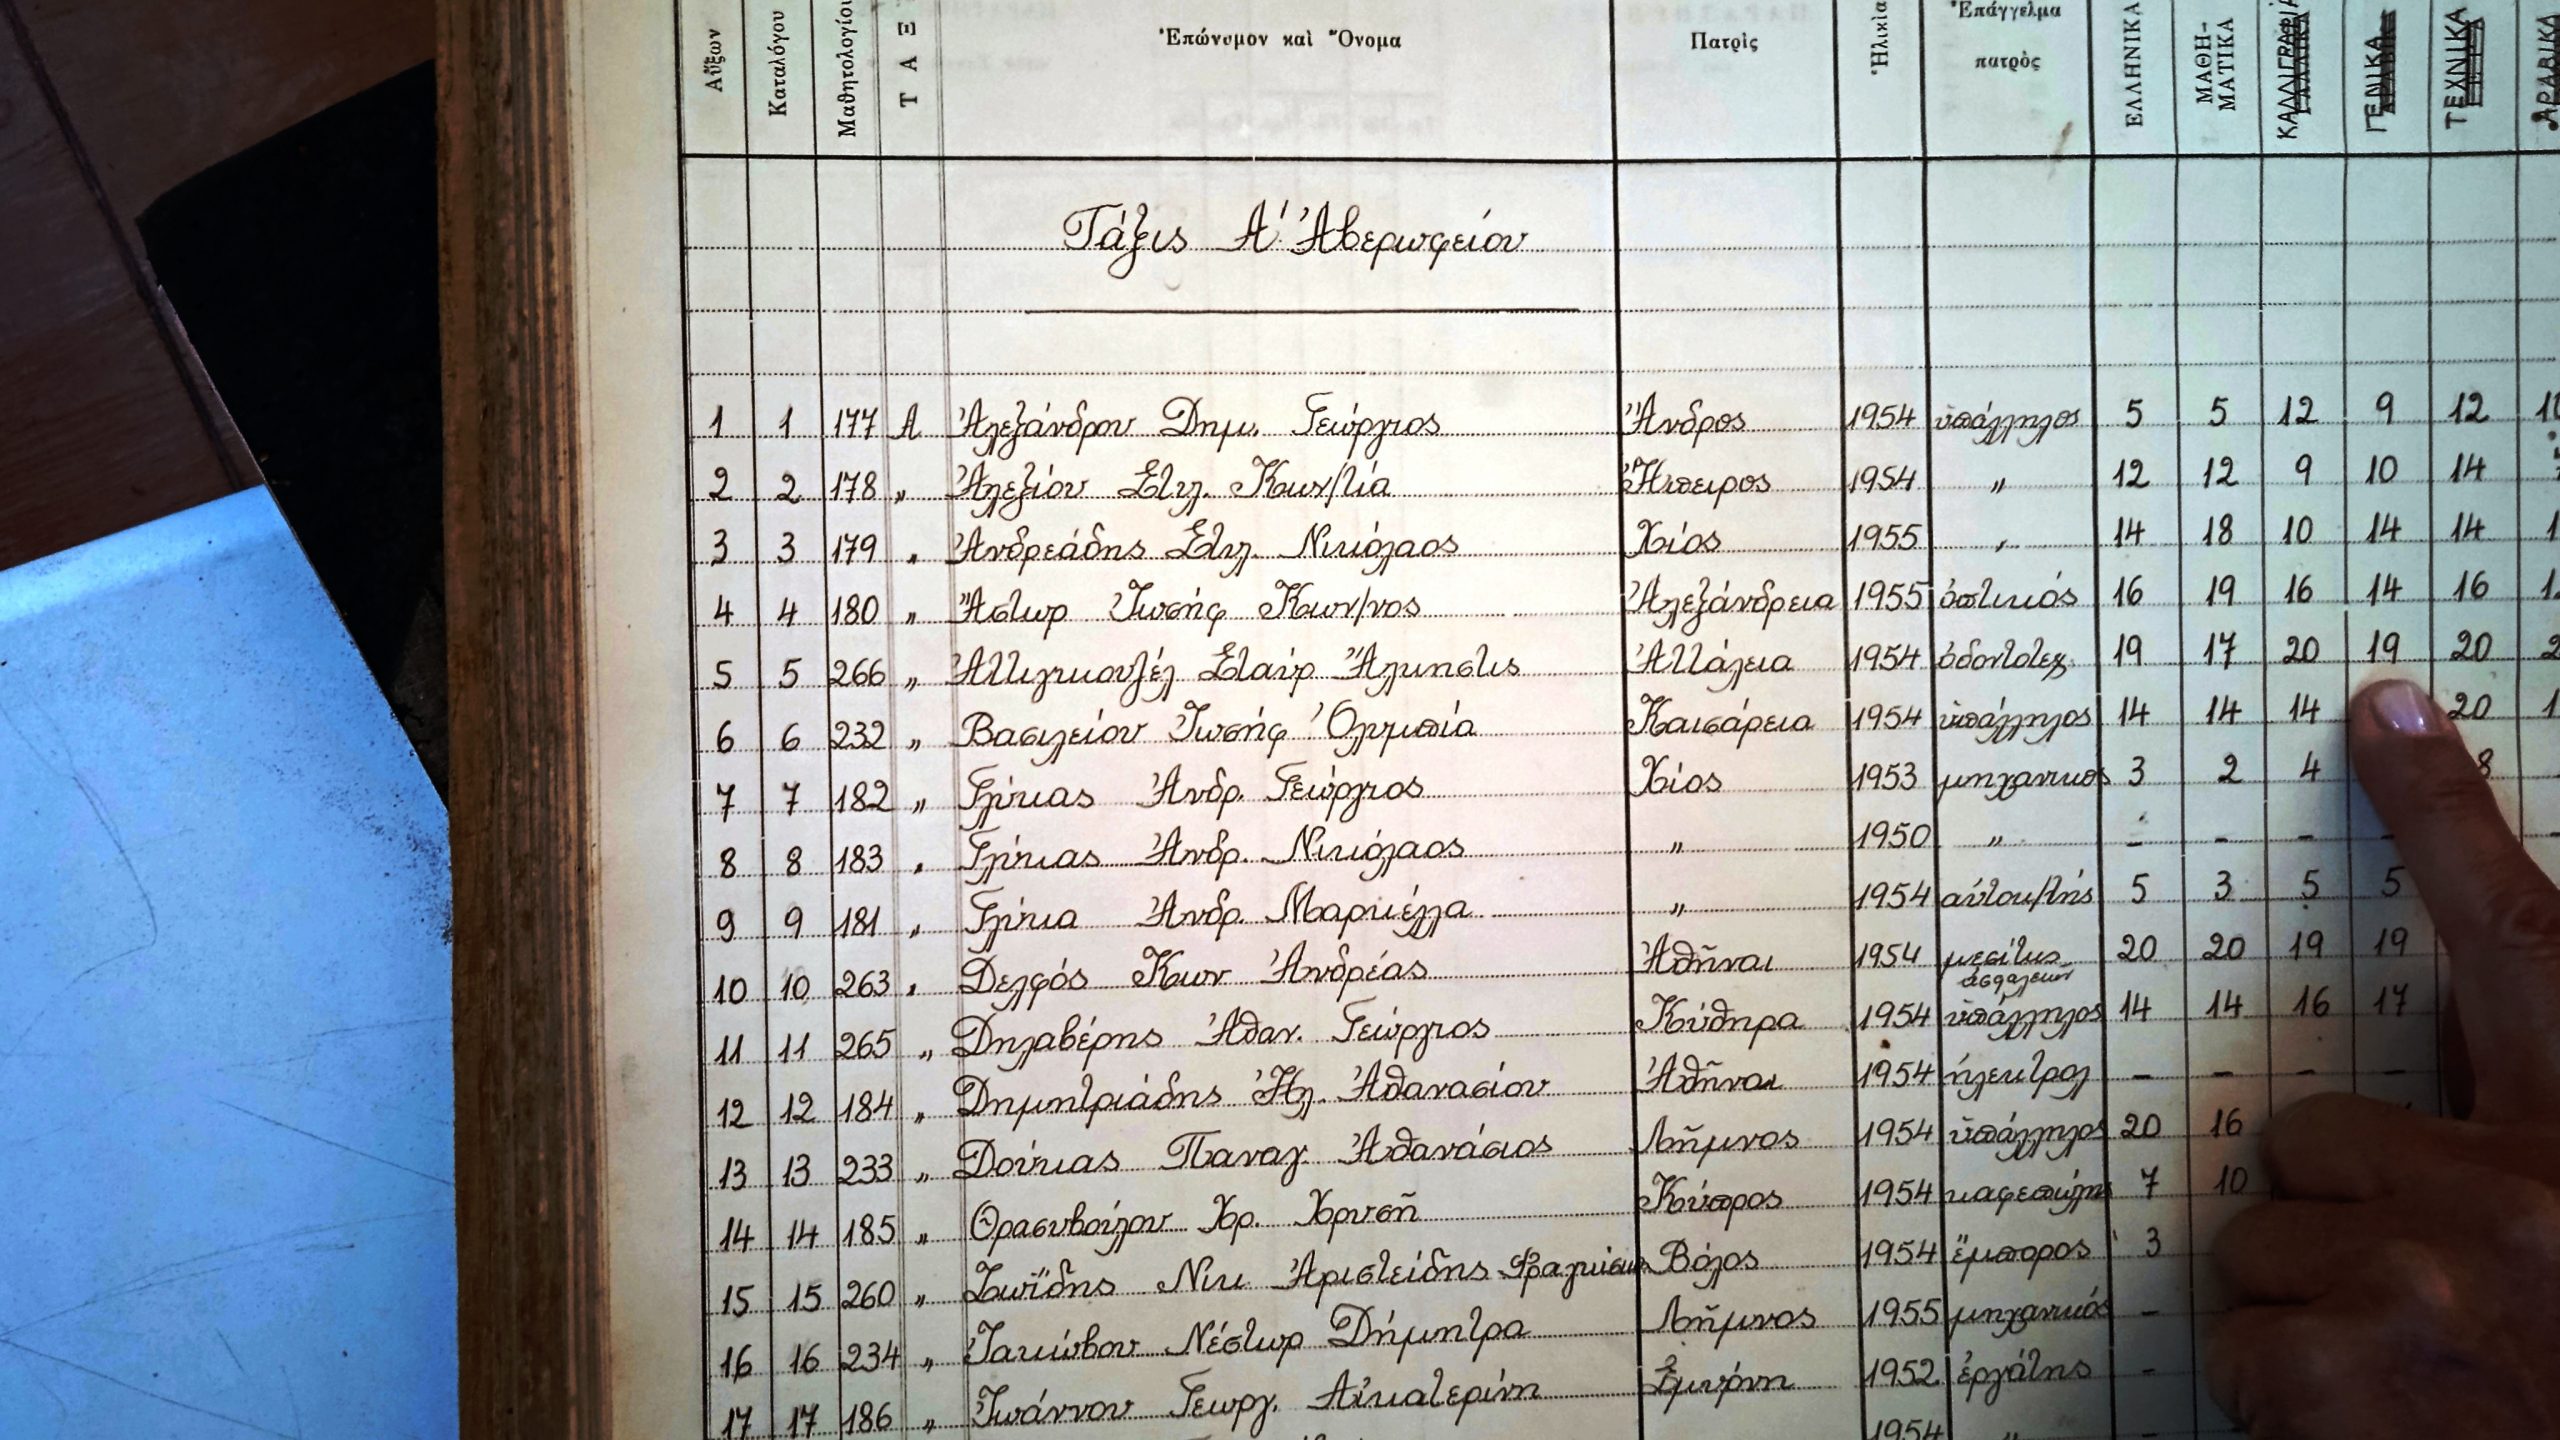 Αὔξων Καταλόγου Μαθητολογίου ΤΑΞ Ἐπώνυμον καὶ Ὄνομα Πατρὶς Ἡλικία Ἐπάγγελμα πατρὸς ΕΛΛΗΝΙΚΑ ΜΑΘΗ-ΜΑΤΙΚΑ ΚΑΛΛΙΓΡΑΦΙΑ ΓΕΝΙΚΑ ΤΕΧΝΙΚΑ ΑΡΑΒΙΚΑ
Τάξις Α' Ἀβερωφείου
1 1 177 Α Ἀλεξάνδρου Δημ. Γεώργιος Ἄνδρος 1954 ὑπάλληλος 5 5 12 9 12
2 2 178 " Ἀλεξίου Στυλ. Κων/τία Ἤπειρος 1954 " 12 12 9 10 14
3 3 179 " Ἀνδρεάδης Στυλ. Νικόλαος Χίος 1955 " 14 18 10 14 14
4 4 180 " Ἄστωρ Ἰωσήφ Κων/νος Ἀλεξάνδρεια 1955 ὀπτικός 16 19 16 14 16
5 5 266 " Ἀττιγκουζέλ Σταύρ Ἄλκηστις Ἀττάλεια 1954 ὀδοντοτεχ. 19 17 20 19 20
6 6 232 " Βασιλείου Ἰωσήφ Ὀλυμπία Καισάρεια 1954 ὑπάλληλος 14 14 14 20
7 7 182 " Γλύκας Ἀνδρ. Γεώργιος Χίος 1953 μηχανικός 3 2 4 8
8 8 183 " Γλύκας Ἀνδρ. Νικόλαος " 1950 " - - - -
9 9 181 " Γλύκα Ἀνδρ. Μαρκέλλα " 1954 αὐτοκ/τής 5 3 5 5
10 10 263 " Δελφός Κων Ἀνδρέας Ἀθῆναι 1954 μεσίτης ἀσφαλειῶν 20 20 19 19
11 11 265 " Δηλαβέρης Ἀθαν. Γεώργιος Κύθηρα 1954 ὑπάλληλος 14 14 16 17
12 12 184 " Δημητριάδης Ἠλ. Ἀθανασίου Ἀθῆναι 1954 ἠλεκτρολ - - - -
13 13 233 " Δούκας Παναγ. Ἀθανάσιος Λῆμνος 1954 ὑπάλληλος 20 16
14 14 185 " Θρασυβούλου Χρ. Χρυσῆ Κύπρος 1954 καφεπώλης 7 10
15 15 260 " Ζωΐδης Νικ Ἀριστείδης Φραγκίσκος Βόλος 1954 ἔμπορος 3
16 16 234 " Ἰακώβου Νέστωρ Δήμητρα Λῆμνος 1955 μηχανικός -
17 17 186 " Ἰωάννου Γεωργ. Αἰκατερίνη Σμύρνη 1952 ἐργάτης -
1954 "